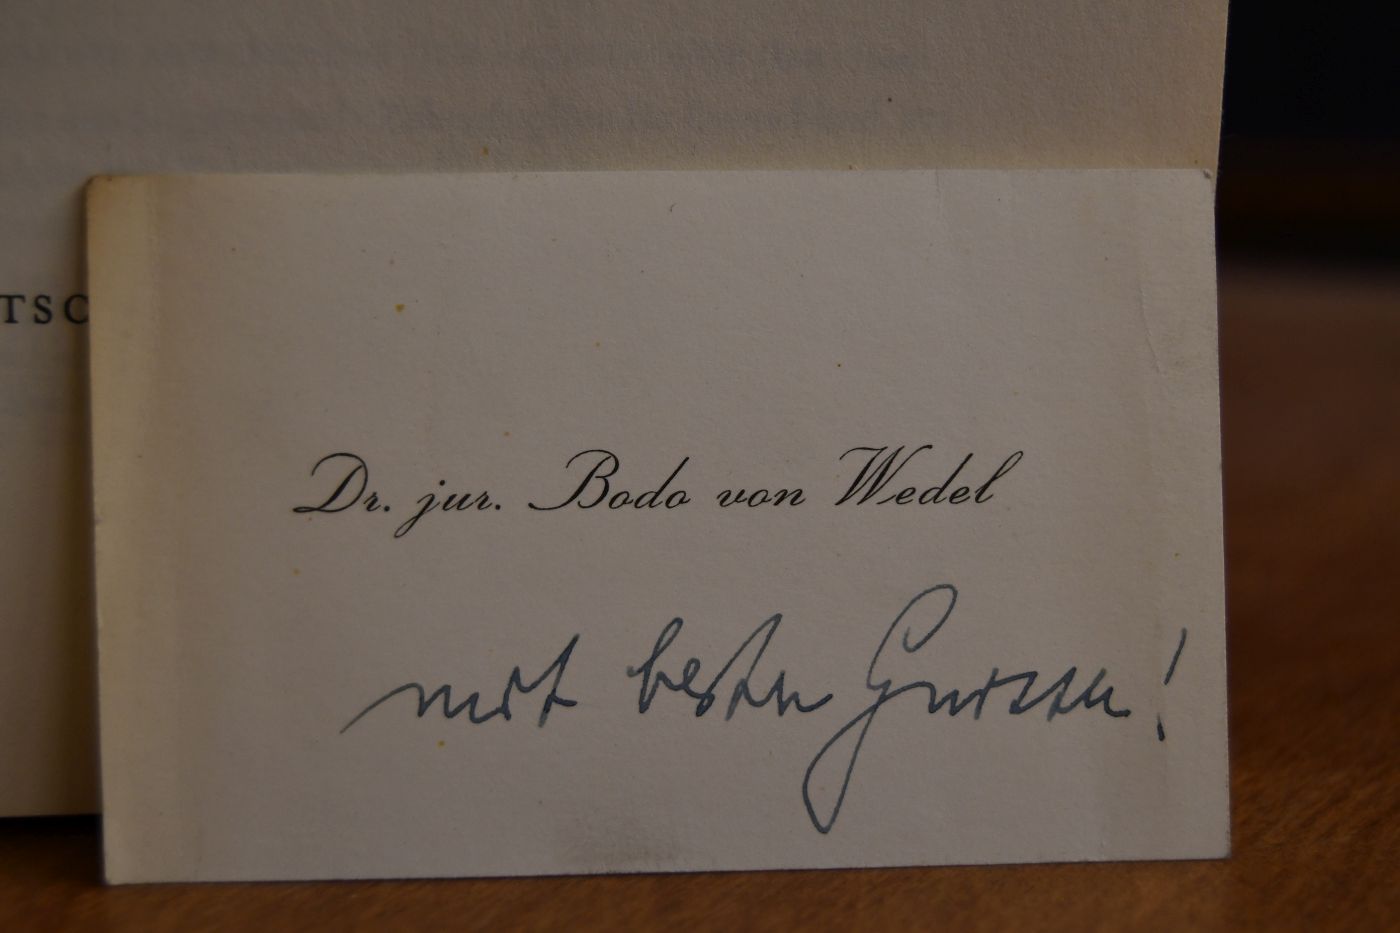 TSC
Dr. jur. Bodo von Wedel
mit besten Grüssen!